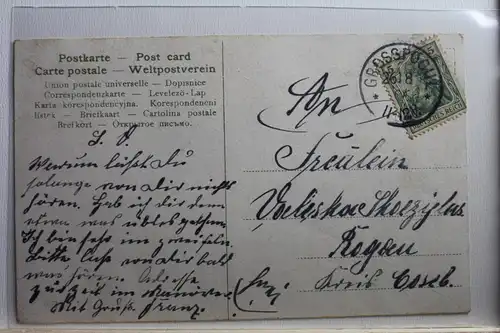 Postkarte – Post card
Carte postale – Weltpostverein
Union postale universelle – Dopisnice
Correspondenzkarte – Levelező-Lap
Karta korespondencyjna, Korespondeni
lístek – Briefkaart – Cartolina postale
Brefkort – Открытое письмо.
L. V.
Warum läßt Du
solange von Dir nichts
hören. Hab ich dir denn
etwas was übles gethan.
Ich bin sehr im zweifeln.
Bitte laß von dir bald
was hören. Adresse
zur Zeit im Manöver.
Mit Gruß. Franz.
An
Fräulein
Kreis Coseb.